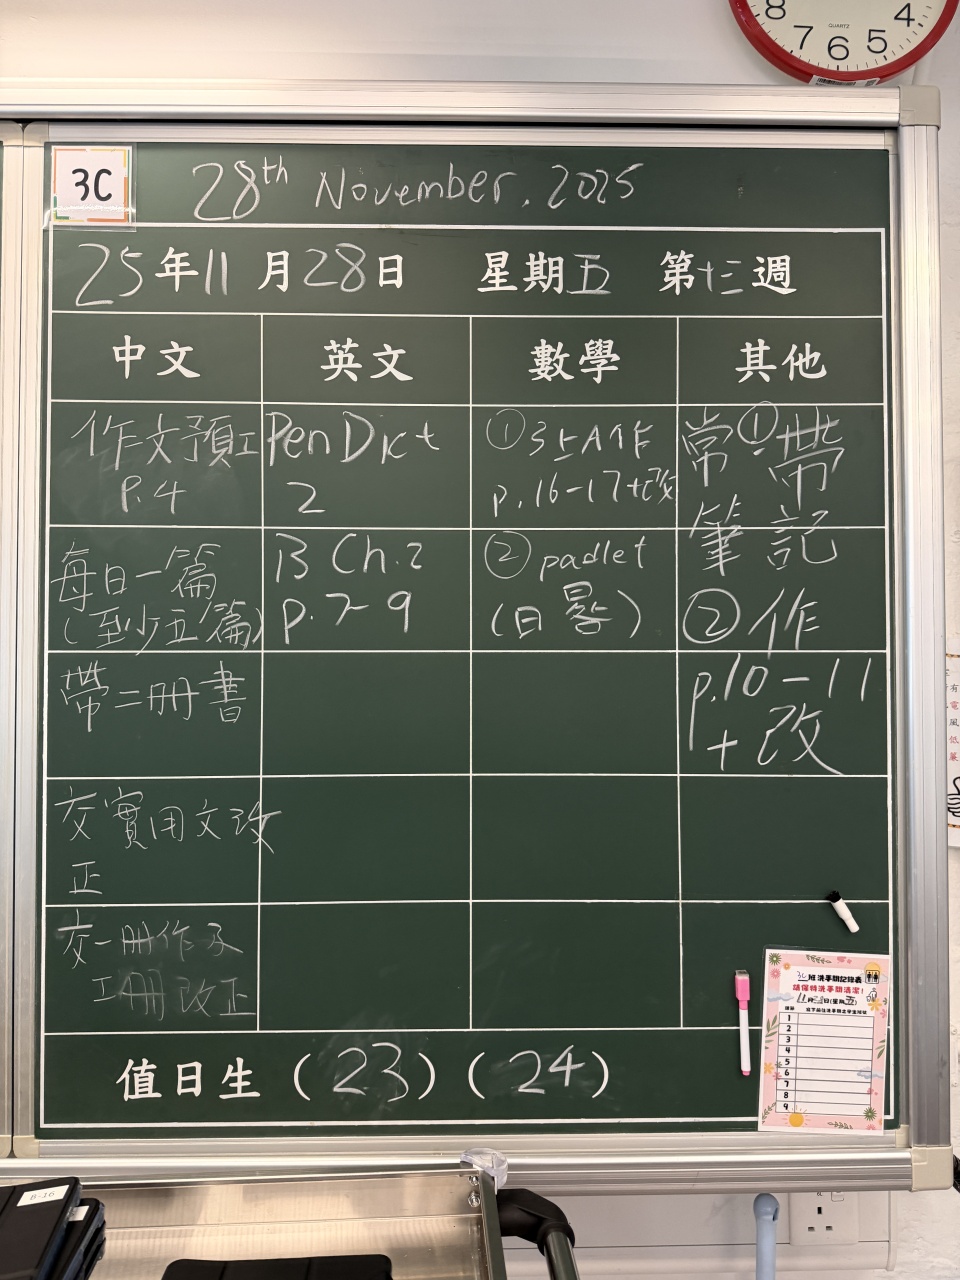 8 7 6 5 4
QUARTZ
3C
28th November, 2025
25年11月28日 星期五 第十三週
中文 英文 數學 其他
作文預工
P.4
每日一篇
(至少五篇)
帶二冊書
交實用文改
正
交一冊作及
工冊改正
Pen Dict
2
B Ch.2
p.7-9
① 3上A作
p.16-17+改
② padlet
(日晷)
常①帶
筆記
②作
p.10-11
+改
值日生 (23) (24)
3C班洗手間記錄表
請保持洗手間清潔!
1
2
3
4
5
6
7
8
9
B-16